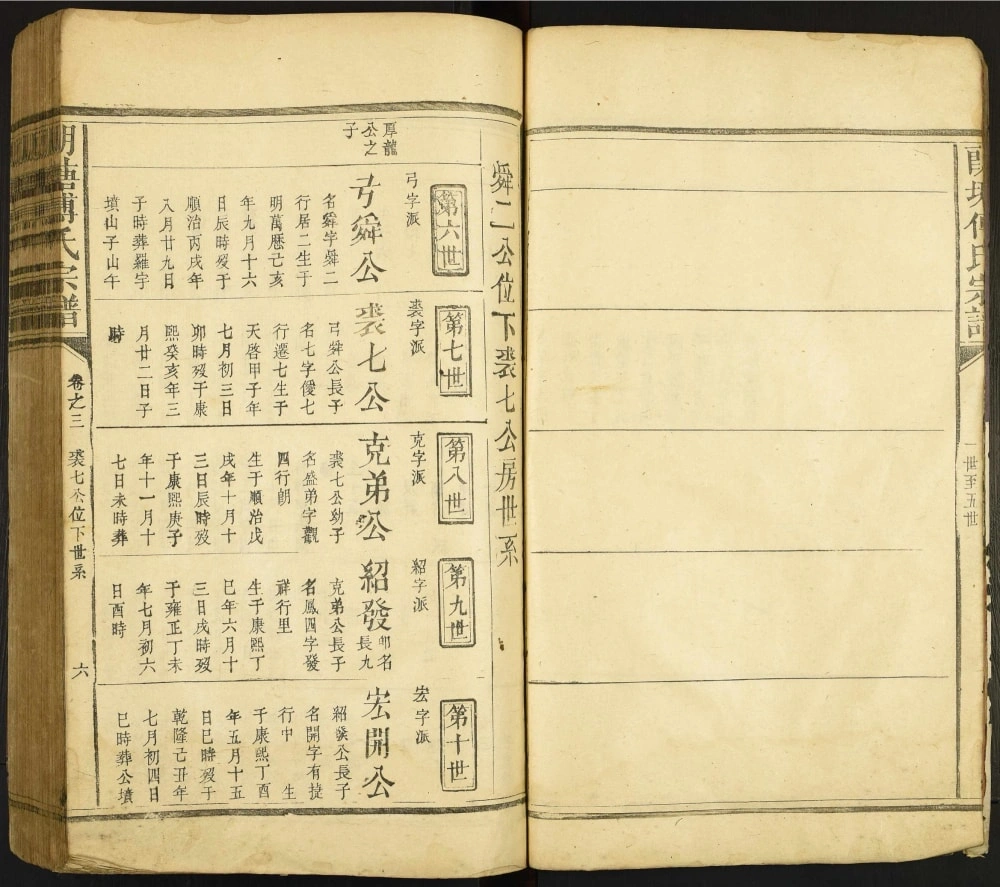 氏宗譜
一世至五世
舜二公位下裘七公房世系
厚龍
公之
子
第六世
弓字派
弓舜公
名舜字舜二
行居二生于
明萬歷己亥
年九月十六
日辰時歿于
順治丙戌年
八月廿九日
子時葬羅字
墳山子山午
第七世
裘字派
裘七公
弓舜公長子
名七字優七
行遷七生于
天啓甲子年
七月初三日
卯時歿于康
熙癸亥年三
月廿二日子
時
第八世
克字派
克弟公
裘七公幼子
名盛弟字觀
四行朗
生于順治戊
戌年十月十
三日辰時歿
于康熙庚子
年十一月十
七日未時葬
第九世
紹字派
紹發
卽名
長九
克弟公長子
名鳳四字發
祥行里
生于康熙丁
巳年六月十
三日戌時歿
于雍正丁未
年七月初六
日酉時
第十世
宏字派
宏開公
紹發公長子
名開字有㨗
行中 生
于康熙丁酉
年五月十五
日巳時歿于
乾隆己丑年
七月初四日
巳時葬公墳
氏宗譜
卷之三
裘七公位下世系
六